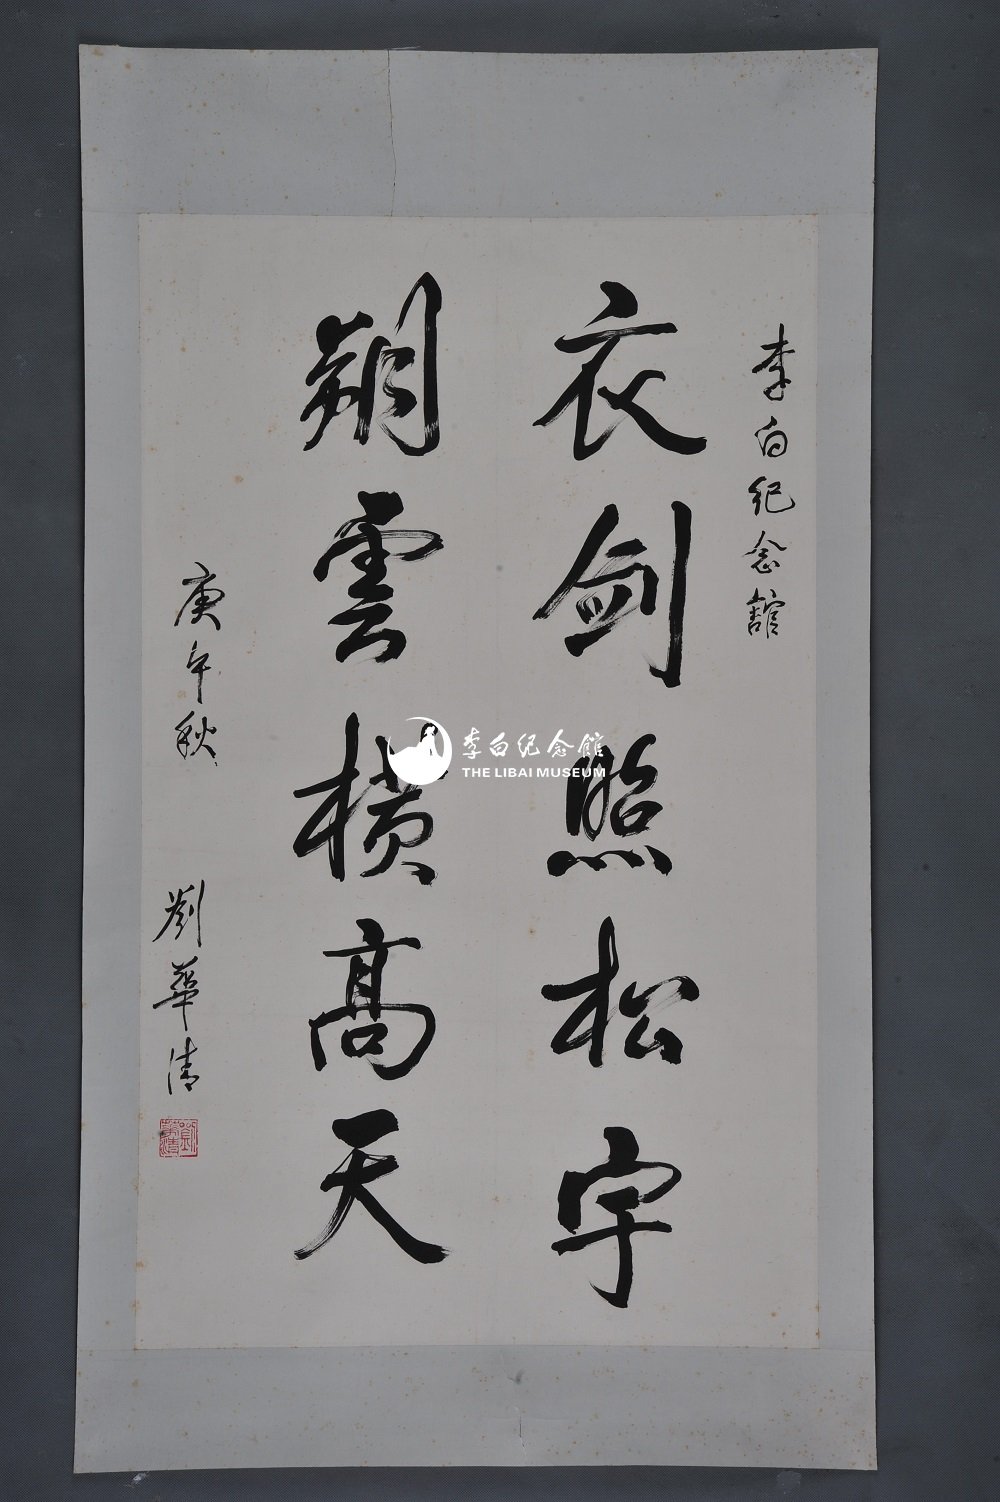 李白纪念馆
衣剑照松宇
朔雲横高天
庚午秋
劉華清
李白纪念馆
THE LIBAI MUSEUM